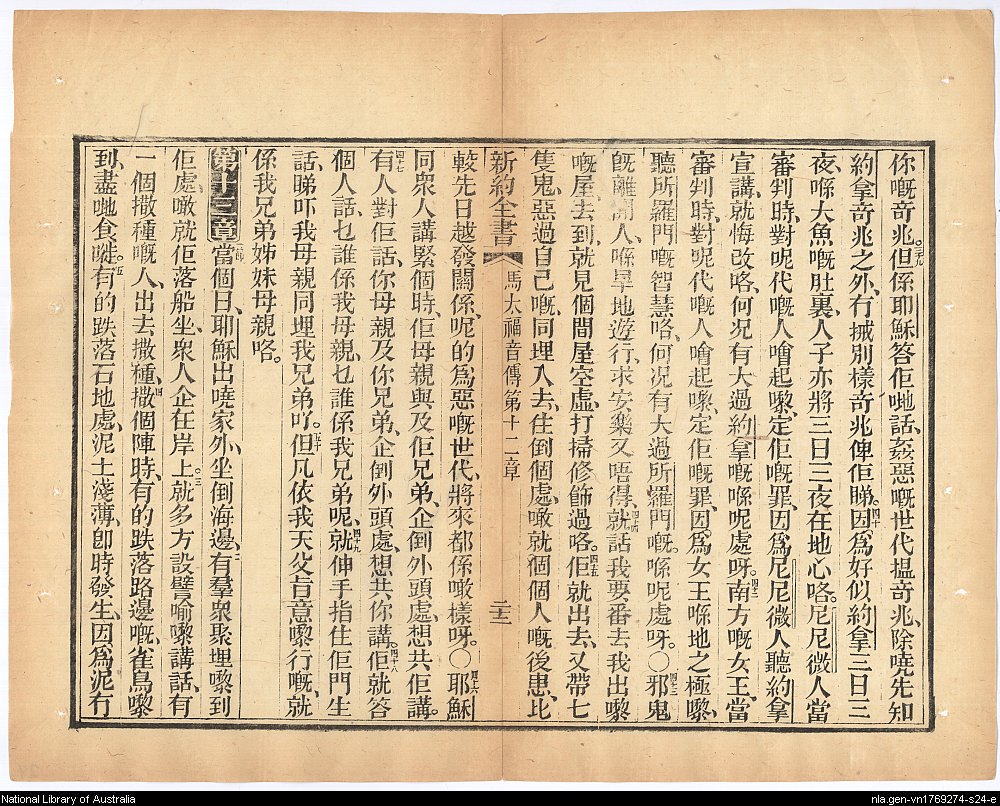 你嘅奇兆、三十九但係耶穌答佢哋話、姦惡嘅世代揾奇兆、除曉先知
約拿奇兆之外、冇𢬿別樣奇兆俾佢睇。四十因爲好似約拿三日三
夜、喺大魚嘅肚裏、人子亦將三日三夜在地心咯。尼尼微人當
審判時、對呢代嘅人噲起嚟、定佢嘅罪、因爲尼尼微人聽約拿
宣講、就悔改咯、何况有大過約拿嘅喺呢處呀。四二南方嘅女王、當
審判時、對呢代嘅人噲起嚟、定佢嘅罪、因爲女王喺地之極嚟、
聽所羅門嘅智慧咯、何况有大過所羅門嘅、喺呢處呀。〇四三邪鬼
既離開人、喺旱地遊行、求安樂又唔得、四四就話我要番去我出嚟
嘅屋、去到、就見個間屋空虛、打掃修飾過咯。四五佢就出去、又帶七
隻鬼、惡過自己嘅、同埋入去、住倒個處、噉就個個人嘅後患、比
新約全書 馬太福音傳第十二章 二十三
較先日越發關係、呢的爲惡嘅世代、將來都係噉樣呀。〇四六耶穌
同衆人講緊個時、佢母親與及佢兄弟、企倒外頭處、想共佢講。
四七有人對佢話、你母親及你兄弟、企倒外頭處、想共你講。四十八佢就答
個人話、乜誰係我母親、乜誰係我兄弟呢、四十九就伸手指住佢門生
話、睇吓我母親同埋我兄弟吖。五十但凡依我天父旨意嚟行嘅、就
係我兄弟姊妹母親咯。
第十三章 一節當個日、耶穌出曉家外、坐倒海邊、二有羣衆聚埋嚟到
佢處、噉就佢落船坐、衆人企在岸上。三就多方設譬喻嚟講話、有
一個撒種嘅人、出去撒種、四撒個陣時、有的跌落路邊嘅、雀鳥嚟
到、盡哋食嘥。五有的跌落石地處、泥土淺薄、卽時發生、因爲泥冇
National Library of Australia
nla.gen-vn1769274-s24-e